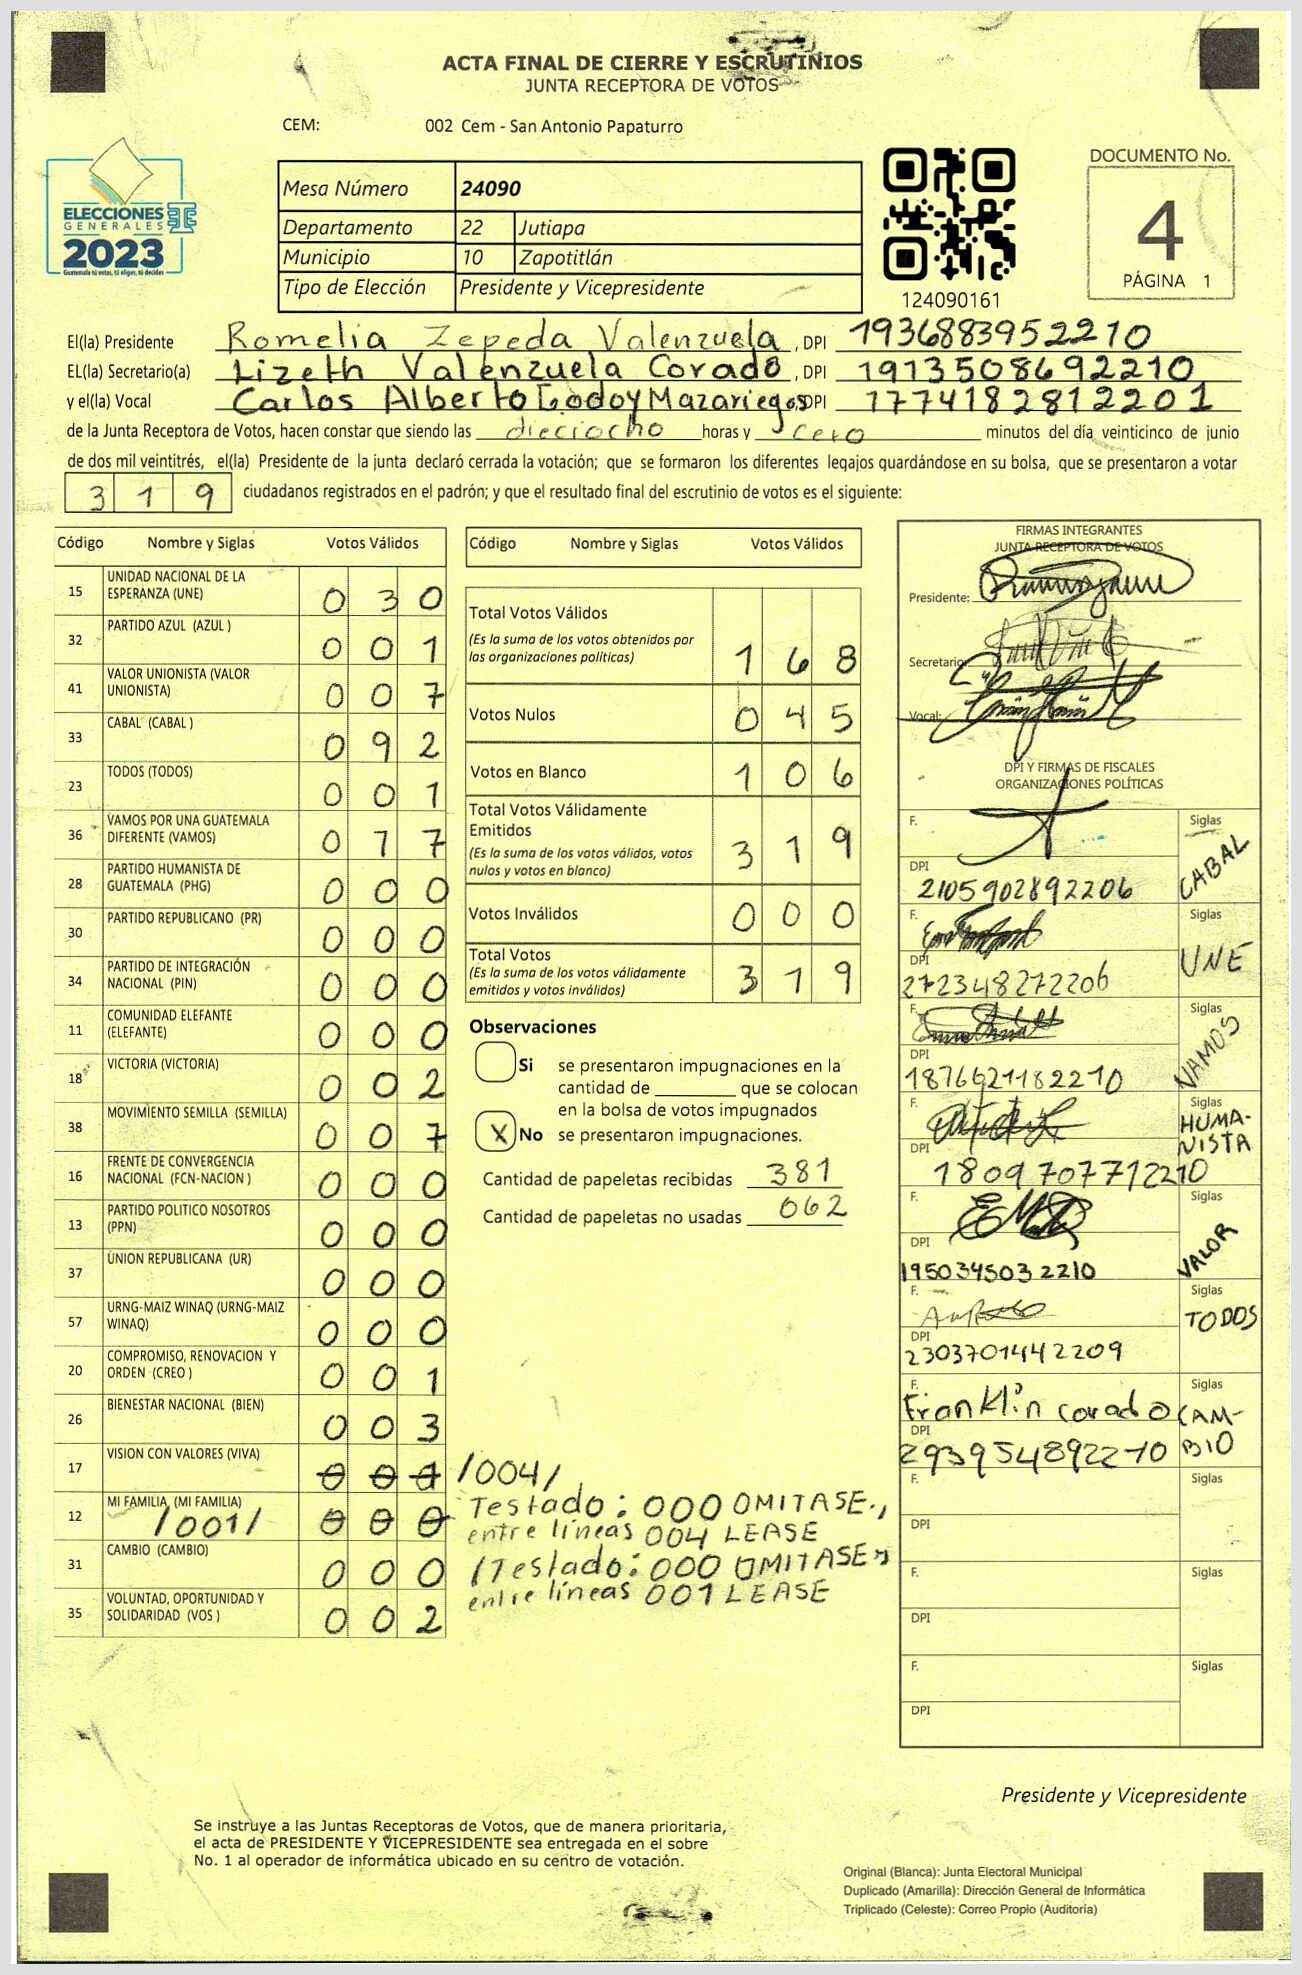 ACTA FINAL DE CIERRE Y ESCRUTINIOS
JUNTA RECEPTORA DE VOTOS
CEM: 002 Cem - San Antonio Papaturro
ELECCIONES
GENERALES
2023
Guatemala tú votas, tú eliges, tú decides
Mesa Número 24090
Departamento 22 Jutiapa
Municipio 10 Zapotitlán
Tipo de Elección Presidente y Vicepresidente
124090161
DOCUMENTO No.
4
PÁGINA 1
El(la) Presidente Romelia Zepeda Valenzuela, DPI 1936883952210
EL(la) Secretario(a) Lizeth Valenzuela Corado, DPI 1913508692210
y el(la) Vocal Carlos Alberto Godoy Mazariegos, DPI 1774182812201
de la Junta Receptora de Votos, hacen constar que siendo las dieciocho horas y cero minutos del día veinticinco de junio
de dos mil veintitrés, el(la) Presidente de la junta declaró cerrada la votación; que se formaron los diferentes legajos guardándose en su bolsa, que se presentaron a votar
3 1 9 ciudadanos registrados en el padrón; y que el resultado final del escrutinio de votos es el siguiente:
Código Nombre y Siglas Votos Válidos
15 UNIDAD NACIONAL DE LA ESPERANZA (UNE) 0 3 0
32 PARTIDO AZUL (AZUL ) 0 0 1
41 VALOR UNIONISTA (VALOR UNIONISTA) 0 0 7
33 CABAL (CABAL ) 0 9 2
23 TODOS (TODOS) 0 0 1
36 VAMOS POR UNA GUATEMALA DIFERENTE (VAMOS) 0 1 7
28 PARTIDO HUMANISTA DE GUATEMALA (PHG) 0 0 0
30 PARTIDO REPUBLICANO (PR) 0 0 0
34 PARTIDO DE INTEGRACIÓN NACIONAL (PIN) 0 0 0
11 COMUNIDAD ELEFANTE (ELEFANTE) 0 0 0
18 VICTORIA (VICTORIA) 0 0 2
38 MOVIMIENTO SEMILLA (SEMILLA) 0 0 7
16 FRENTE DE CONVERGENCIA NACIONAL (FCN-NACION ) 0 0 0
13 PARTIDO POLITICO NOSOTROS (PPN) 0 0 0
37 UNION REPUBLICANA (UR) 0 0 0
57 URNG-MAIZ WINAQ (URNG-MAIZ WINAQ) 0 0 0
20 COMPROMISO, RENOVACION Y ORDEN (CREO ) 0 0 1
26 BIENESTAR NACIONAL (BIEN) 0 0 3
17 VISION CON VALORES (VIVA) 0 0 1 /004/
12 MI FAMILIA (MI FAMILIA) /001/ 0 0 0
31 CAMBIO (CAMBIO) 0 0 0
35 VOLUNTAD, OPORTUNIDAD Y SOLIDARIDAD (VOS ) 0 0 2
Código Nombre y Siglas Votos Válidos
Total Votos Válidos
(Es la suma de los votos obtenidos por
las organizaciones políticas) 1 6 8
Votos Nulos 0 4 5
Votos en Blanco 1 0 6
Total Votos Válidamente
Emitidos
(Es la suma de los votos válidos, votos
nulos y votos en blanco) 3 1 9
Votos Inválidos 0 0 0
Total Votos
(Es la suma de los votos válidamente
emitidos y votos inválidos) 3 1 9
Observaciones
Si se presentaron impugnaciones en la
cantidad de que se colocan
en la bolsa de votos impugnados
X No se presentaron impugnaciones.
Cantidad de papeletas recibidas 381
Cantidad de papeletas no usadas 062
Testado: 000 OMITASE.,
entre líneas 004 LEASE
/Testado: 000 OMITASE,
entre líneas 001 LEASE
FIRMAS INTEGRANTES
JUNTA RECEPTORA DE VOTOS
Presidente:
Secretario:
Vocal:
DPI Y FIRMAS DE FISCALES
ORGANIZACIONES POLÍTICAS
F. Siglas CABAL
DPI 2105902892206
F. Siglas UNE
DPI 272348272206
F. Siglas VAMOS
DPI 1876621182210
F. Siglas HUMA-
NISTA
DPI 1809707712210
F. Siglas VALOR
DPI 1950345032210
F. Siglas TODOS
DPI 2303701442209
F. Franklin corado Siglas CAM-
BIO
DPI 2939548922210
F. Siglas
DPI
F. Siglas
DPI
F. Siglas
DPI
Presidente y Vicepresidente
Se instruye a las Juntas Receptoras de Votos, que de manera prioritaria,
el acta de PRESIDENTE Y VICEPRESIDENTE sea entregada en el sobre
No. 1 al operador de informática ubicado en su centro de votación.
Original (Blanca): Junta Electoral Municipal
Duplicado (Amarilla): Dirección General de Informática
Triplicado (Celeste): Correo Propio (Auditoria)